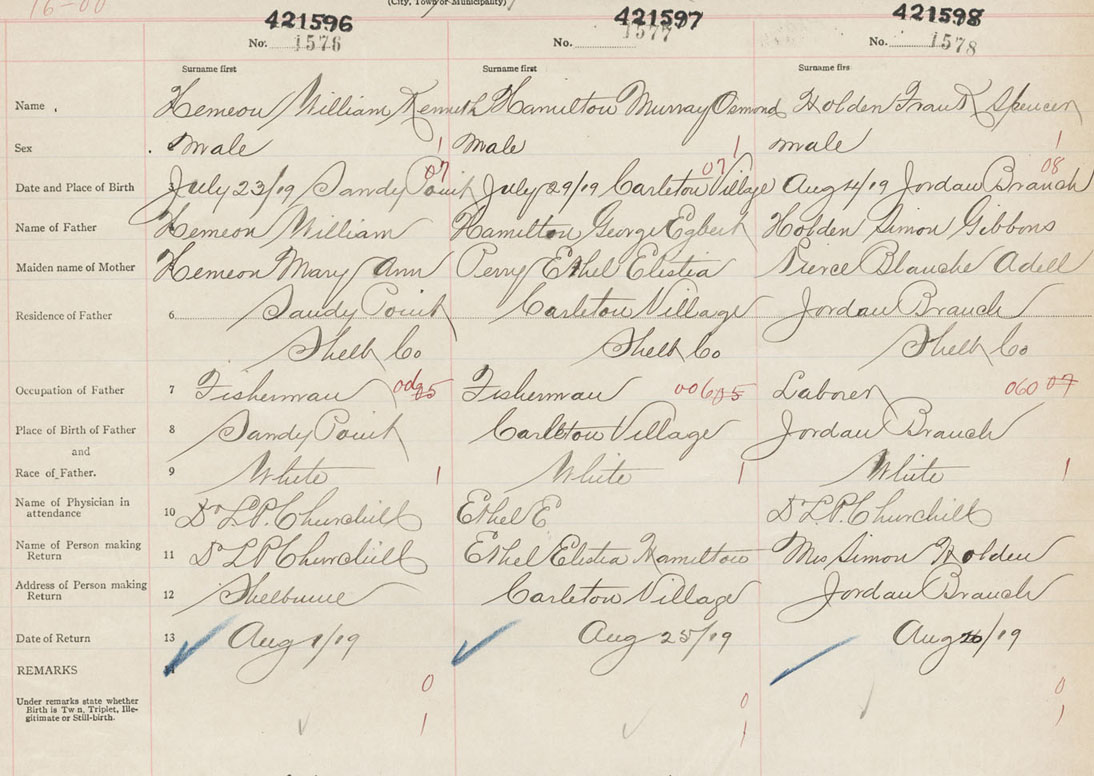 16-00
(City, Town or Municipality)
421596 421597 421598
No. 1576 No. 1577 No. 1578
Surname first Surname first Surname firs
Name Hemeon William Kenneth Hamilton Murray Osmond Holden Frank Spencer
Sex male 1 male 1 male 1
07 07 08
Date and Place of Birth July 23/19 Sandy Point July 29/19 Carleton Village Aug 4/19 Jordan Branch
Name of Father Hemeon William Hamilton George Egbert Holden Simon Gibbons
Maiden name of Mother Hemeon Mary Ann Perry Ethel Elistia Pierce Blanche Adell
Residence of Father 6 Sandy Point Carleton Village Jordan Branch
Shelb Co Shelb Co Shelb Co
Occupation of Father 7 Fisherman Fisherman 00605 Laborer 060 07
Place of Birth of Father 8 Sandy Point Carleton Village Jordan Branch
and
Race of Father. 9 White 1 White 1 White 1
Name of Physician in
attendance 10 Dr L.P. Churchill Ethel E Dr L.P. Churchill
Name of Person making
Return 11 Dr L P Churchill Ethel Elistia Hamilton Mrs Simon Holden
Address of Person making
Return 12 Shelburne Carleton Village Jordan Branch
Date of Return 13 Aug 1/19 Aug 25/19 Aug /19
REMARKS
0 0 0
Under remarks state whether
Birth is Tw n, Triplet, Ille-
gitimate or Still-birth.
1 1 1